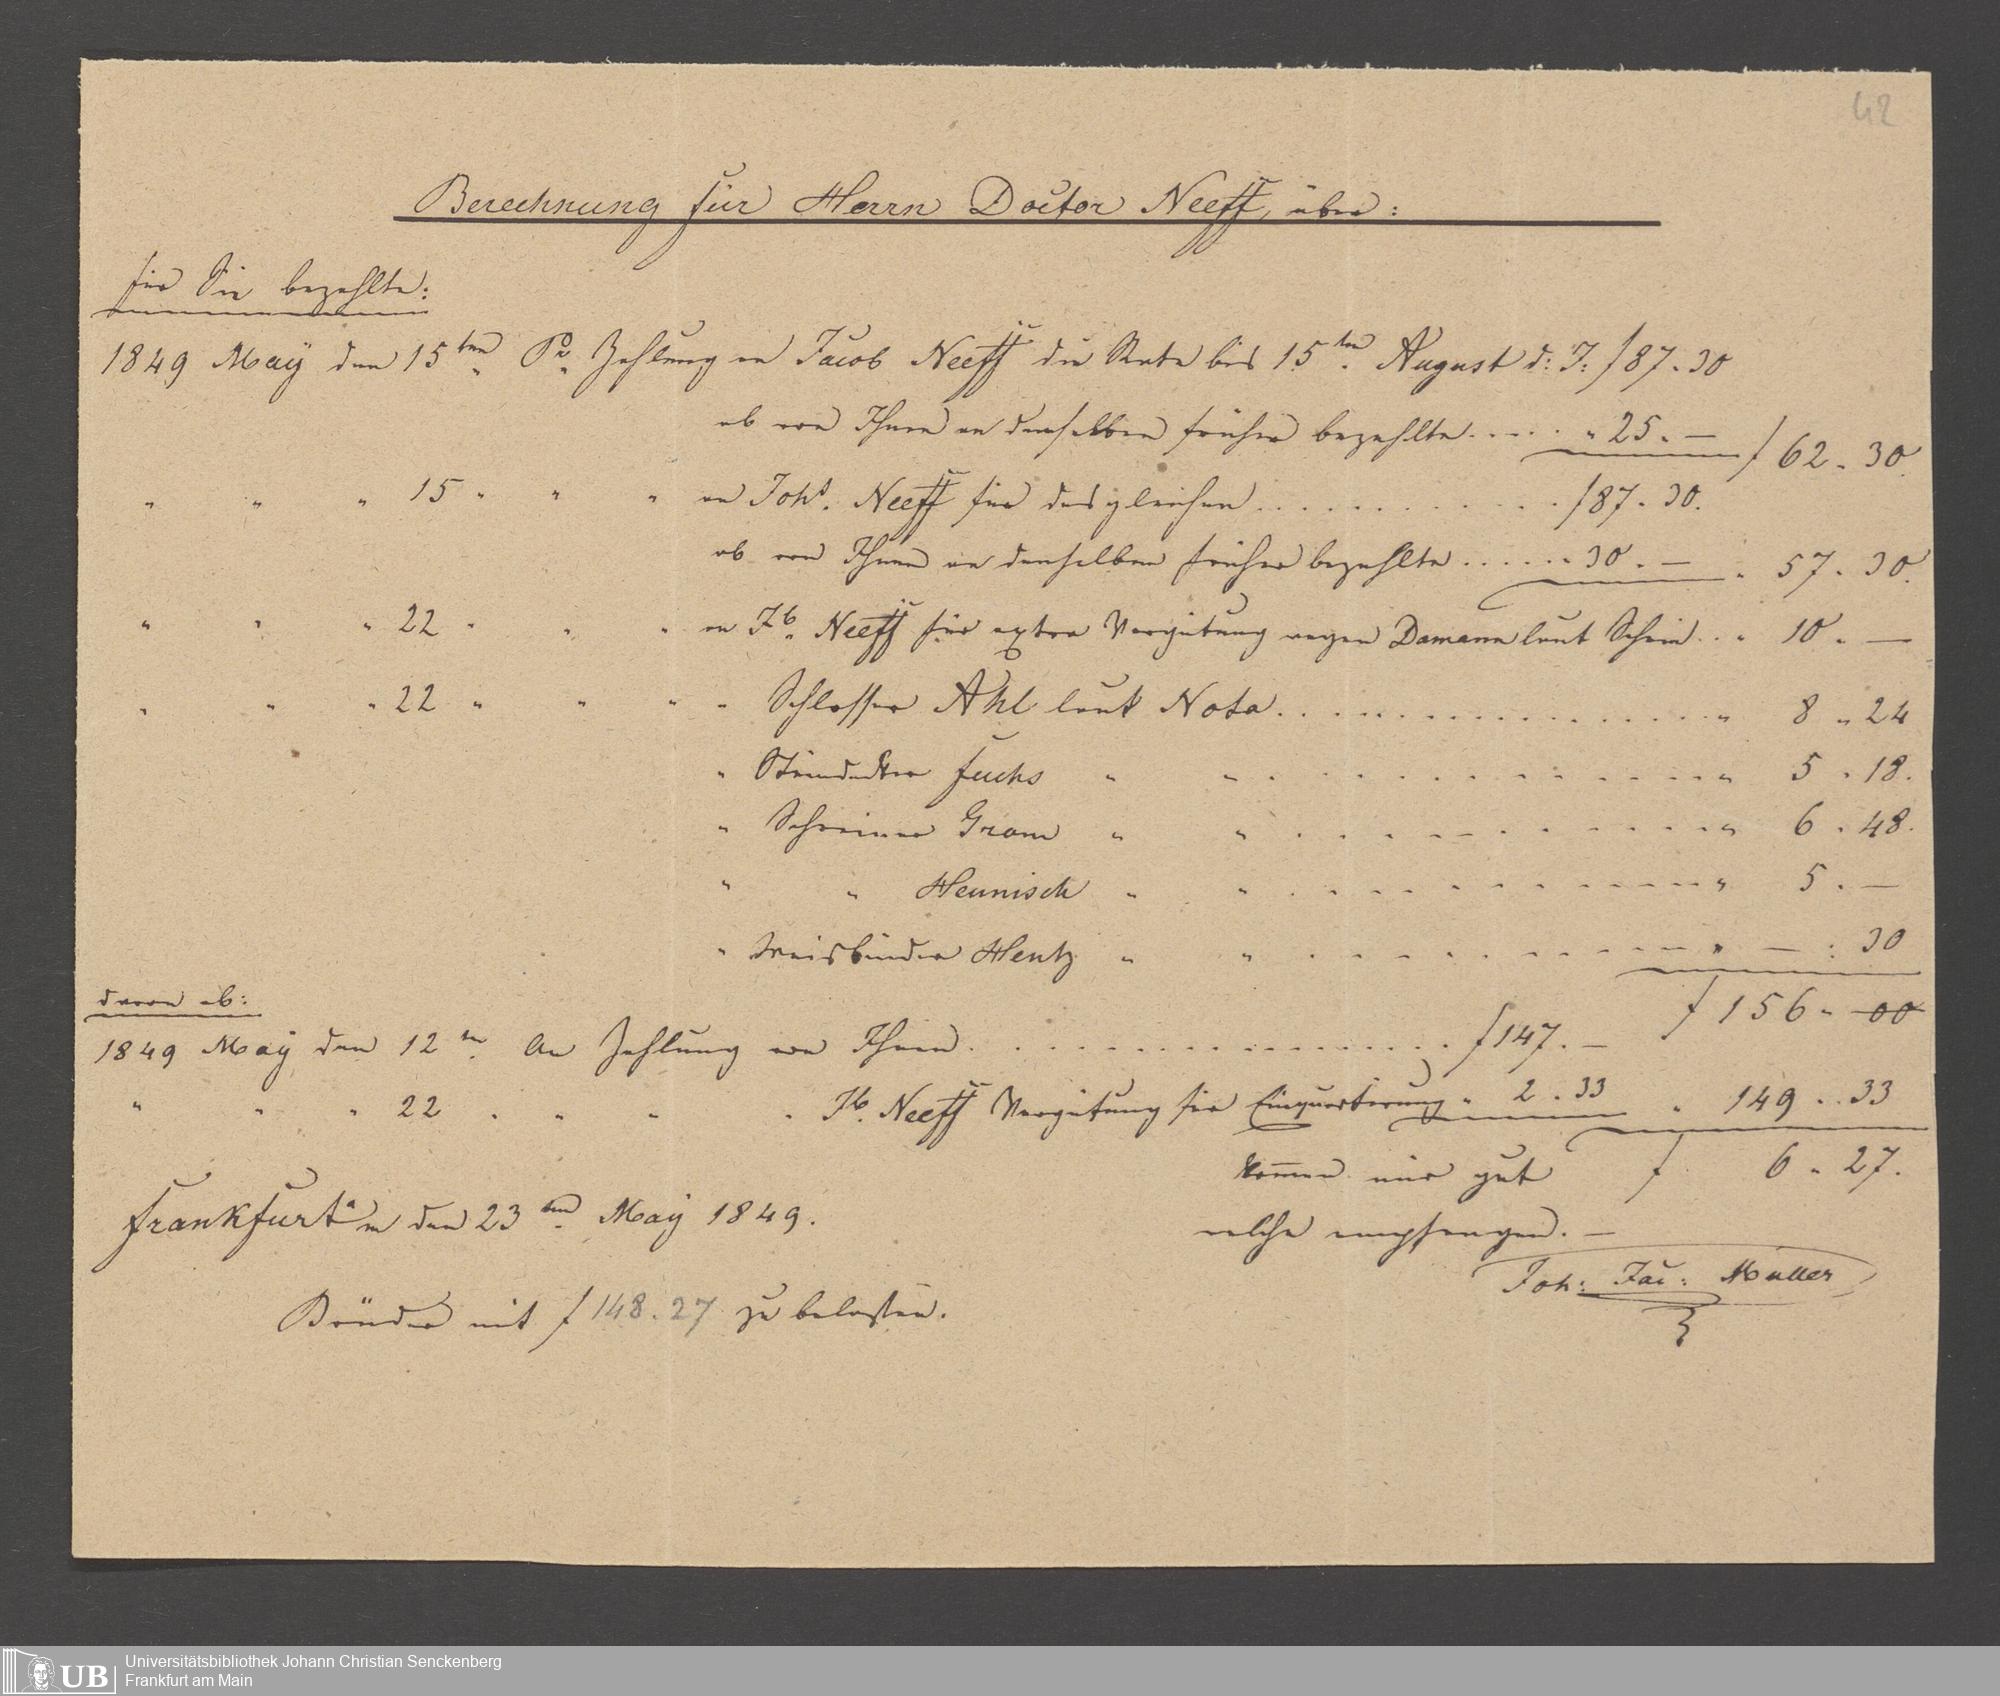 42
Berechnung für Herrn Doctor Neeff, über:
für Sie bezahlte:
1849 Maÿ den 15ten Pr. Zahlung an Jacob Neeff die Rate bis 15ten August d: J: f 87.30
ab von Ihnen an denselben früher bezahlte..... " 25.— f 62.30.
" " " 15 " " " an Johs. Neeff für desgleichen............ f 87.30.
ab von Ihnen an denselben früher bezahlte...... 30.— " 57.30.
" " " 22 " " " an Jb. Neeff für extra Vergütung wegen Damann laut Schein.. " 10.—
" " " 22 " " " " Schlosser Ahl laut Nota.................. " 8 " 24
" Fuchs " " ............... " 5 " 18.
" Schreiner Gram " " .............. " 6 " 48.
" " Heunisch " " .............. " 5.—
" Weisbinder Hentz " " ............. " — : 30
davon ab: f 156 " 00
1849 Maÿ den 12ten An Zahlung von Ihnen.................. f 147.—
" " " 22 " " " " Jb. Neeff Vergütung für Einquartirung " 2.33 " 149..33
kommen mir gut f 6 " 27.
Frankfurt a/m den 23ten Maÿ 1849.
welche empfangen.—
Joh: Jac: Müller
Brüder mit f 148.27 zu belasten.
UB Universitätsbibliothek Johann Christian Senckenberg
Frankfurt am Main